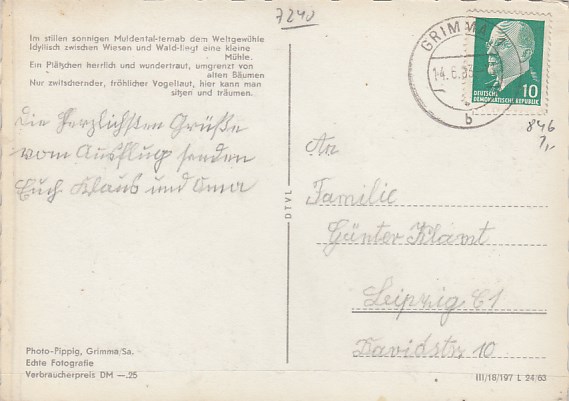 7240
Im stillen sonnigen Muldental-fernab dem Weltgewühle
Idyllisch zwischen Wiesen und Wald-liegt eine kleine
Mühle.
Ein Plätzchen herrlich und wundertraut, umgrenzt von
alten Bäumen
Nur zwitschernder, fröhlicher Vogellaut, hier kann man
sitzen und träumen.
Die herzlichsten Grüße
vom Ausflug senden
Euch Klaus und Oma
DTVL
GRIMMA
14.6.63
b
10
DEUTSCHE
DEMOKRATISCHE REPUBLIK
846
1,-
An
Familie
Günter Klamt
Leipzig C1
Davidstr 10
Photo-Pippig, Grimma/Sa.
Echte Fotografie
Verbraucherpreis DM —.25
III/18/197 L 24/63